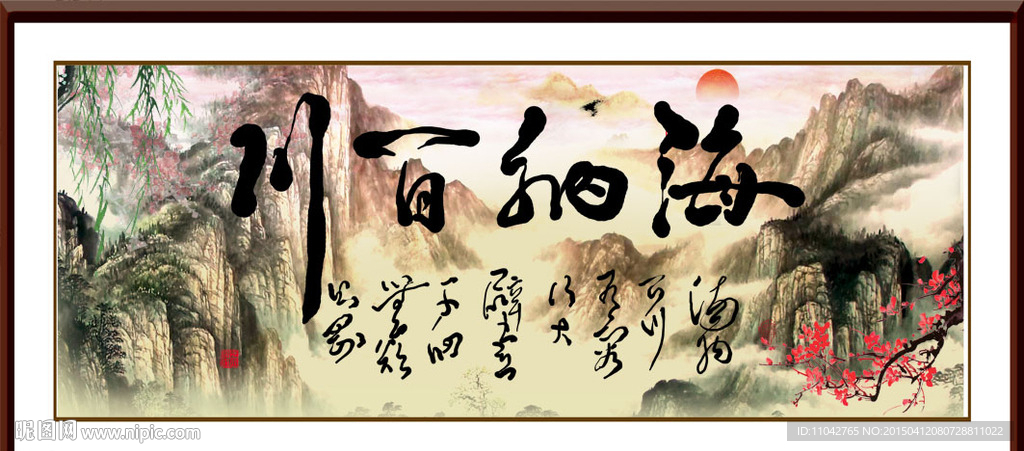 海纳百川
海纳
百川
有容
乃大
壁立
千仞
無欲
则刚
昵图网 www.nipic.com
ID:11042765 NO:20150412080728811022